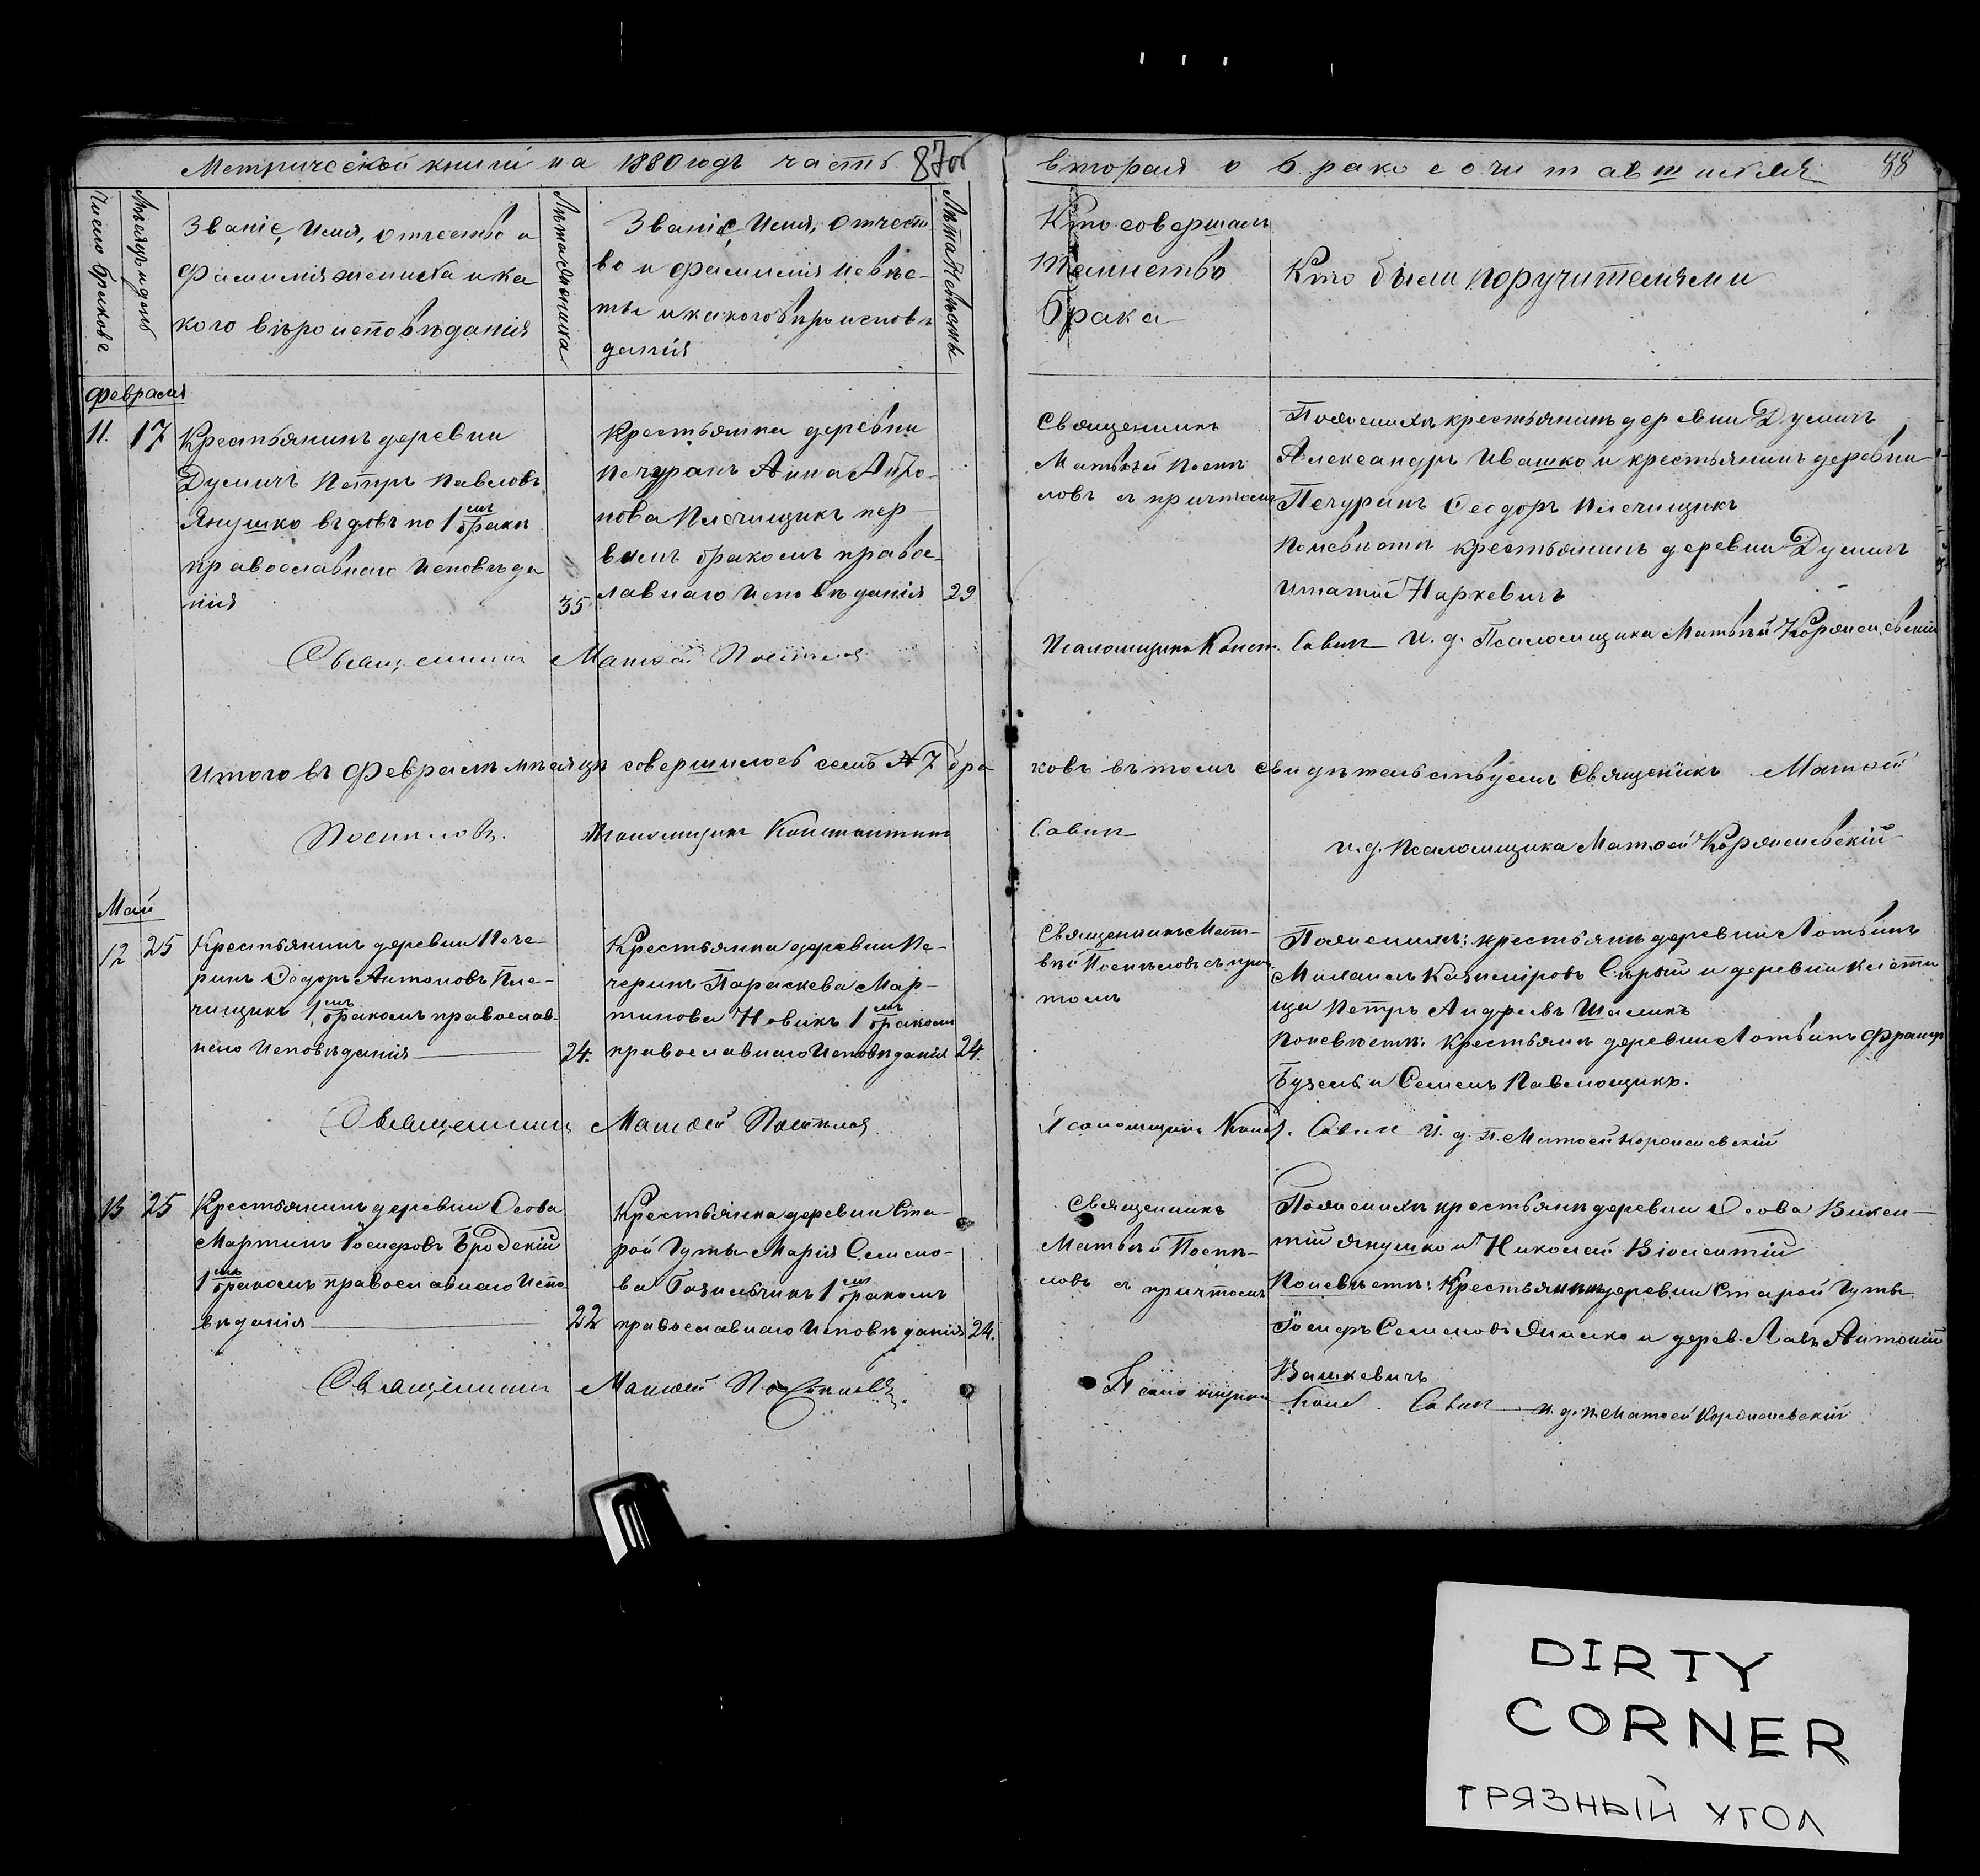 Метрической книги на 1880 годъ часть 87об
вторая о бракосочитавшихся 88
Число браковъ
Мѣсяцъ и день
Званіе, Имя, отчество и
фамилія жениха и ка
кого вѣроисповѣданія
Лѣта жениха
Званіе, Имя, отчест
во и фамилія невѣс-
ты и какого вѣроисповѣ
данія
Лѣта невѣсты
Кто совершалъ
таинство
брака
Кто были поручителями
февраля
11. 17
Крестьянинъ деревни
Думичъ Петръ Павловъ
Янушко вдовъ по 1 емъ бракѣ
православнаго исповѣда
нія 35
Крестьянка деревни
Печуранъ Анна Анто-
нова Плечищикъ пер
вымъ бракомъ правос-
лавнаго исповѣданія 29
Священникъ
Матвѣй Поспѣ
ловъ съ причтомъ
По женихѣ крестьянинъ деревни Думичъ
Александръ Ивашко и крестьянинъ деревни
Печуранъ Ѳеодоръ Плечищикъ
По невѣстѣ крестьянинъ деревни Думичъ
Игнатій Наркевичъ
Священникъ Матѳей Поспѣлов
Псаломщикъ Конст. Савич И. д. Псаломщика Матвѣй
Итого въ Февралѣ мѣсяцѣ совершилось семь 7 бра
ковъ въ томъ свидѣтельствуемъ Священикъ Матѳей
Поспѣловъ. Псаломщикъ Константинъ
Савич
и. д. Псаломщика Матѳей
Май
12 25
Крестьянинъ деревни Пече-
ринъ Ѳедоръ Антоновъ Пле-
чищикъ 1 мъ бракомъ православ-
наго исповѣданія 24.
Крестьянка деревни Пе-
черинъ Параскева Мар-
тинова Новикъ 1 мъ бракомъ
православнаго исповѣданія 24.
Священникъ Мат-
вѣй Поспѣловъ съ прич
томъ
По женихѣ: крестьяне деревни Лотвинъ
Михаилъ Казиміровъ Сирый и деревни Клети
ща Петръ Андреевъ Шаликъ
По невѣстѣ: крестьяне деревни Лотвинъ Францъ
Бузель и Семенъ Павлющикъ.
Священникъ Матѳей Поспѣлов
Псаломщикъ Конс. Савич И. д. п. Матѳей
13 25
Крестьянинъ деревни Осова
Мартинъ Іосифовъ Бродскій
1 мъ бракомъ православнаго испо
вѣданія 22
Крестьянка деревни Ста-
рой Гуты Марія Семено-
ва 1 мъ бракомъ
православнаго исповѣданія 24.
Священникъ
Матвѣй Поспѣ-
ловъ съ причтомъ
По женихѣ крестьяне деревни Осова Викен-
тій Янушко и Николай
По невѣстѣ: Крестьянинъ деревни Старой Гуты
Іосифъ Семеновъ и дерев. Лавъ Антоній
Вашкевичъ
Священникъ Матѳей Поспѣловъ.
Псаломщикъ Конс. Савич и. д. п. Матѳей
DIRTY
CORNER
ГРЯЗНЫЙ УГОЛ